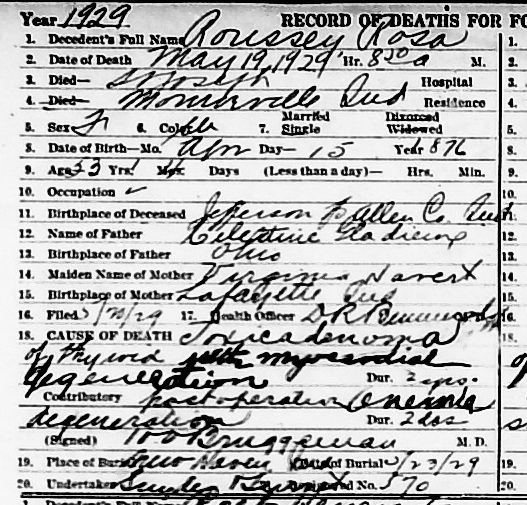 Year 1929 RECORD OF DEATHS FOR FO
1. Decedent's Full Name Roussey Rosa
2. Date of Death May 19, 1929 Hr. 8 20 a M.
3. Died— St Joseph Hospital
4. Died— Monroeville Ind Residence
5. Sex F 6. Color W 7. Married Single Divorced Widowed
8. Date of Birth—Mo. Apr Day— 15 Year 876
9. Age 53 Yrs. 1 Mos. Days (Less than a day)— Hrs. Min.
10. Occupation
11. Birthplace of Deceased Jefferson Tp Allen Co. Ind
12. Name of Father Celestine
13. Birthplace of Father Ohio
14. Maiden Name of Mother Virginia
15. Birthplace of Mother Lafayette Ind
16. Filed 5/20/29 17. Health Officer D R
18. CAUSE OF DEATH Toxicadenoma
of Thyroid with myocardial
degeneration Dur. 2 yrs.
Contributory postoperative anemia
degeneration Dur. 2 das
(Signed) Bruggeman M. D.
19. Place of Burial New Haven Ind Date of Burial 5/23/29
20. Undertaker No. 570